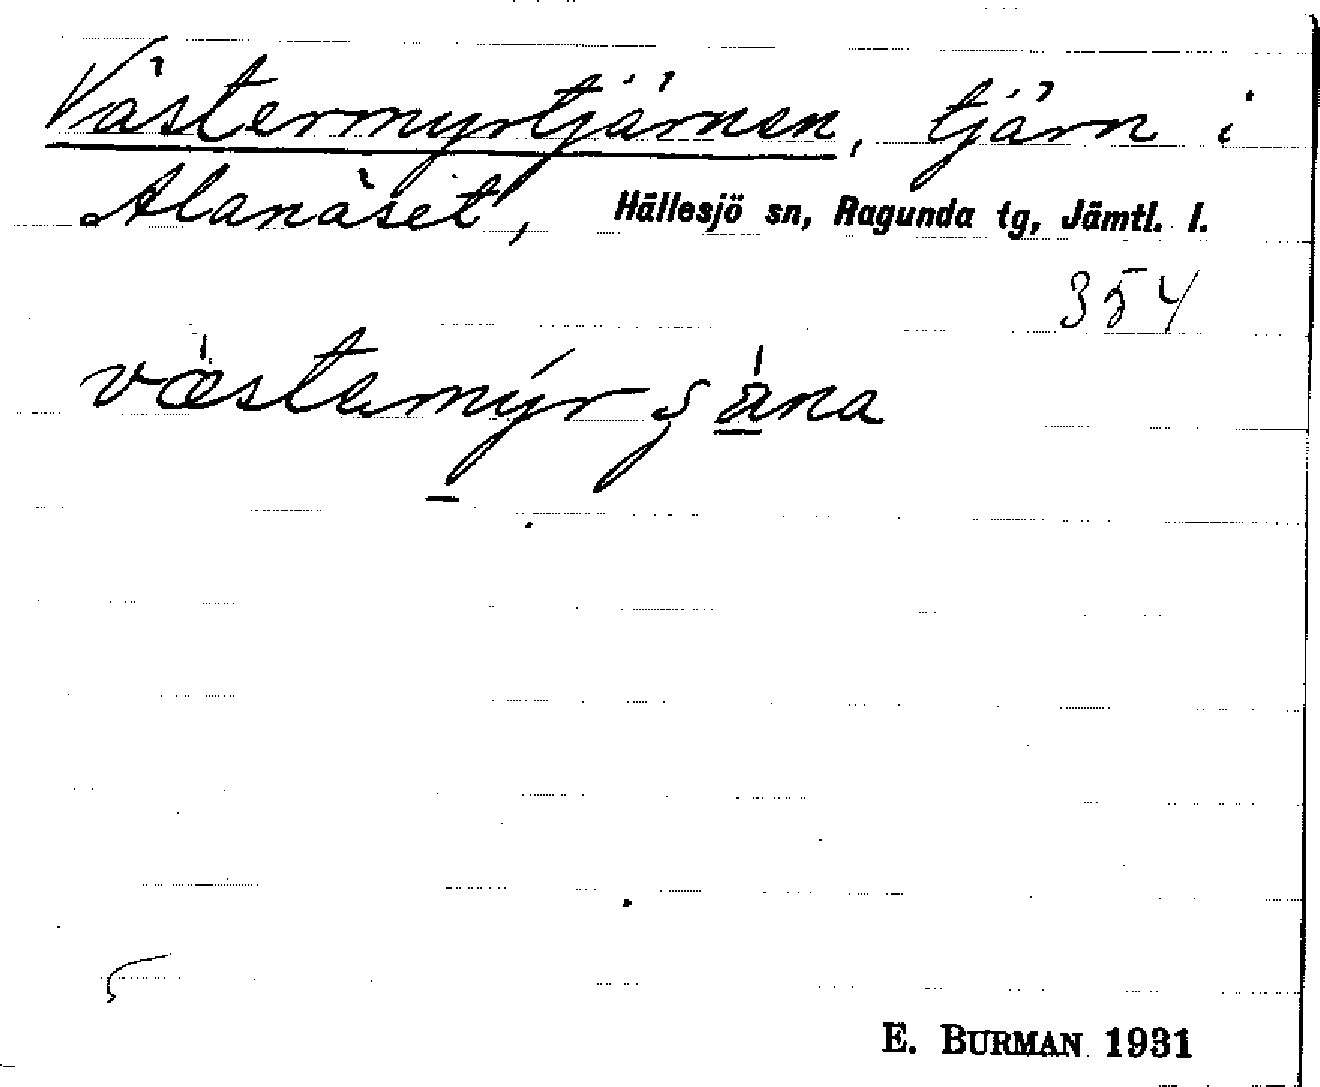 Västermyrtjärnen, tjärn i
Alanäset, Hällesjö sn, Ragunda tg, Jämtl. l.
354
E. BURMAN 1931